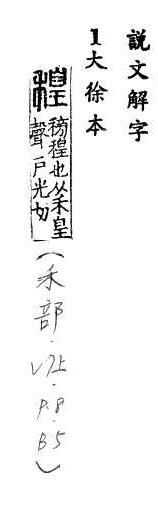 說文解字
1大徐本
䅣
䅭䅣也从禾皇
聲戶光切
(禾部·V7上·P.8·B5)